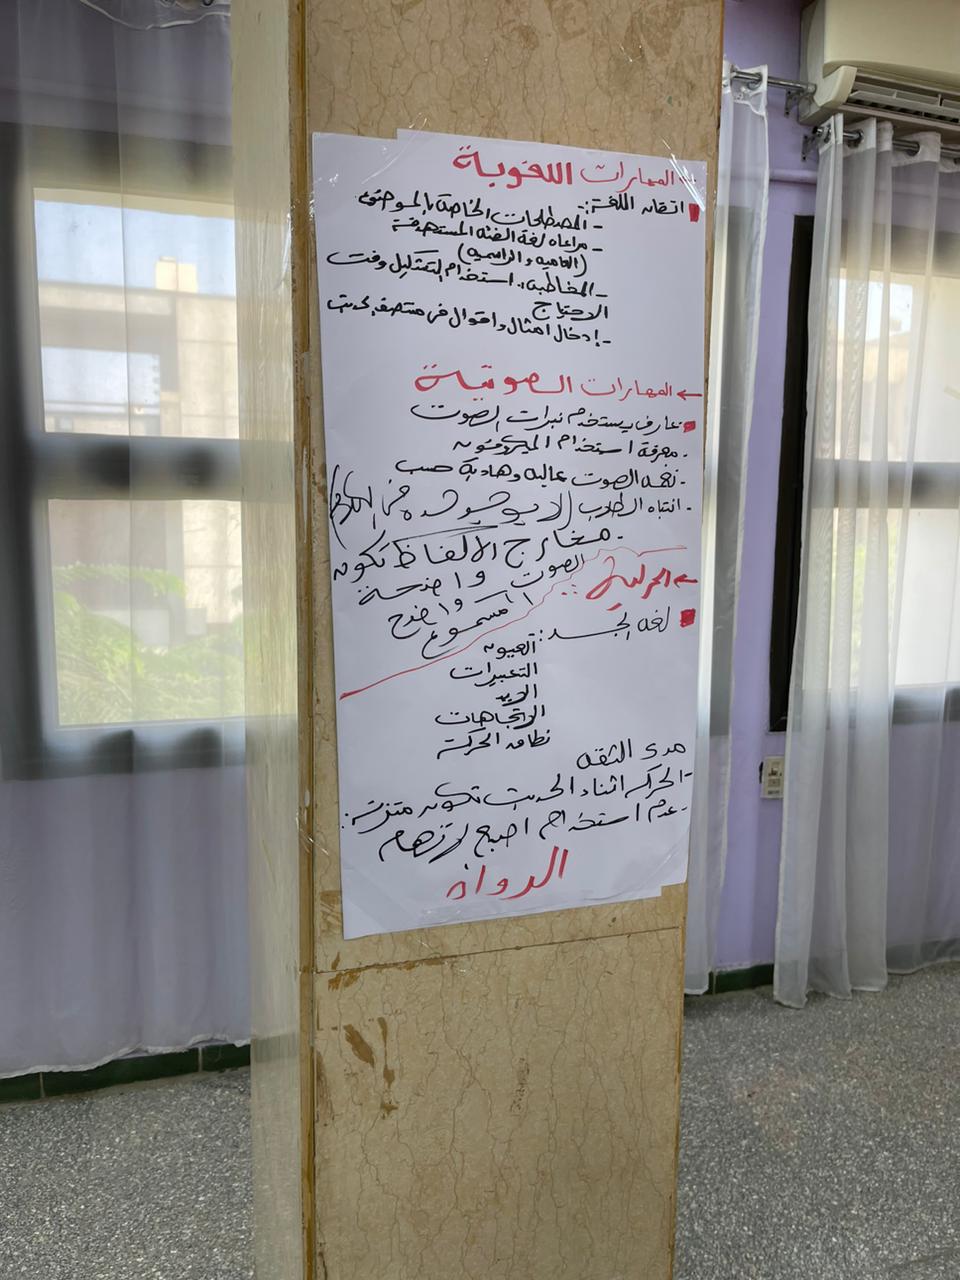 ← المهارات اللغوية
اتقان اللغة:-
- المصطلحات الخاصة بالموضوع
- مراعاه لغة الفئه المستهدفة
(العاميه والرسميه)
- المخاطبه، استخدام التمثيل وقت
الاحتياج
- إدخال امثال واقوال فى منتصف الحديث
← المهارات الصوتية
عارف يستخدم نبرات الصوت
- معرفة استخدام الميكروفون
- نغمه الصوت عاليه وهاديه حسب
- انتباه الطلاب (لا يوشوش في الكلام)
- مخارج الالفاظ تكون
الصوت واضحة
المسموع واضح
← الحركية:
لغه الجسد:
العيون
التعبيرات
الايد
الاتجاهات
نطاق الحركة
مدى الثقه
- الحركه اثناء الحديث تكون متزنة
- عدم استخدام اصبع الاتهام
الرواة